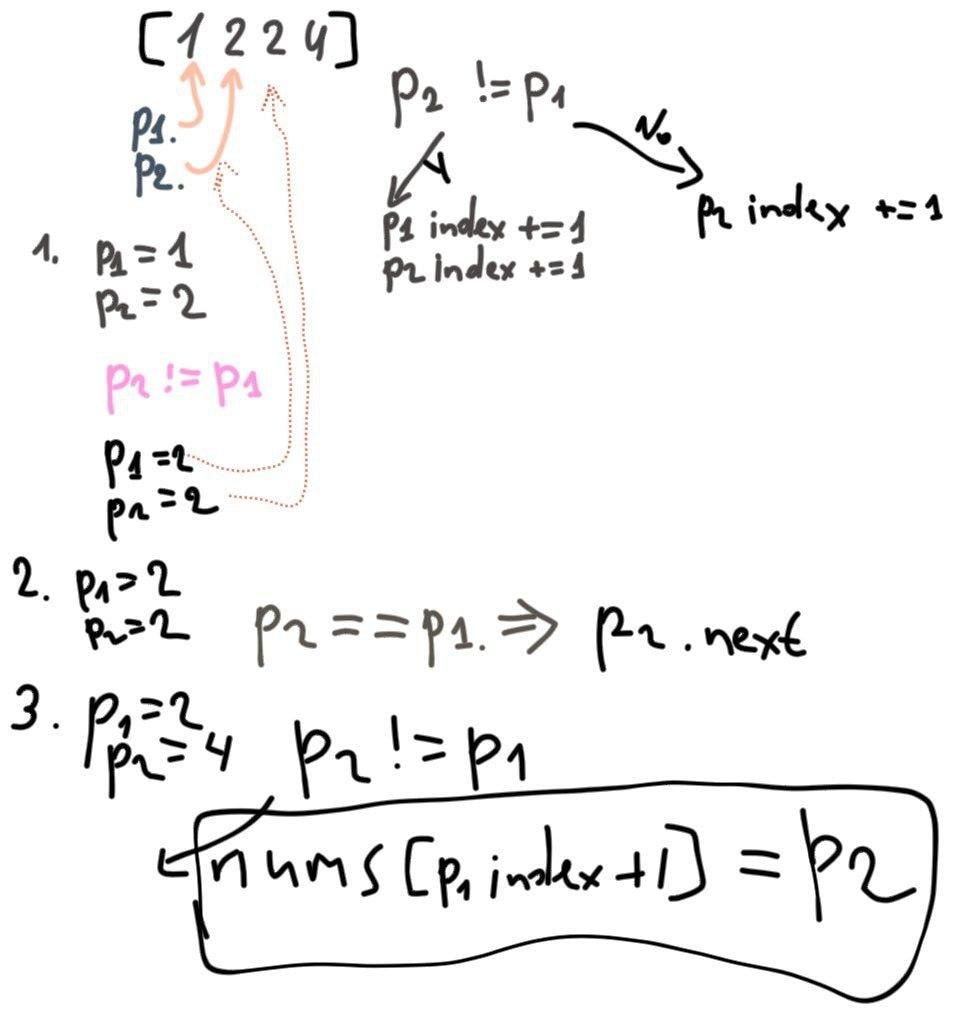 [1 2 2 4]
p1.
p2.
p2 != p1
Y
No
p1 index += 1
p2 index += 1
p2 index += 1
1. p1 = 1
p2 = 2
p2 != p1
p1 = 2
p2 = 2
2. p1 = 2
p2 = 2
p2 == p1. ⇒ p2.next
3. p1 = 2
p2 = 4
p2 != p1
nums[p1 index + 1] = p2